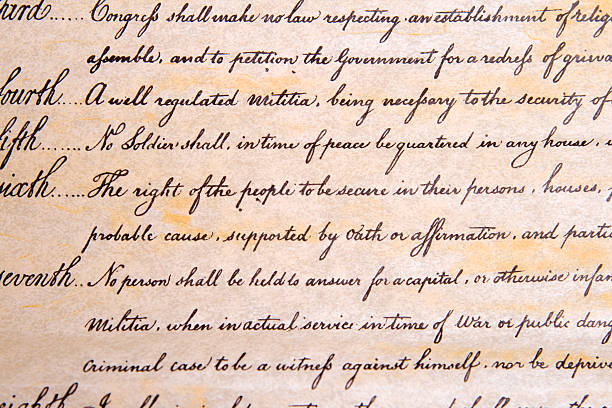 hird...... Congress shall make no law respecting an establishment of relig
assemble, and to petition the Government for a redress of grieva
fourth..... A well regulated Militia, being necessary to the security of
fifth....... No Soldier shall, in time of peace be quartered in any house,
sixth...... The right of the people to be secure in their persons, houses,
probable cause, supported by Oath or affirmation, and partic
seventh.. No person shall be held to answer for a capital, or otherwise infam
Militia, when in actual service in time of War or public dang
criminal case to be a witness against himself, nor be deprive
eighth